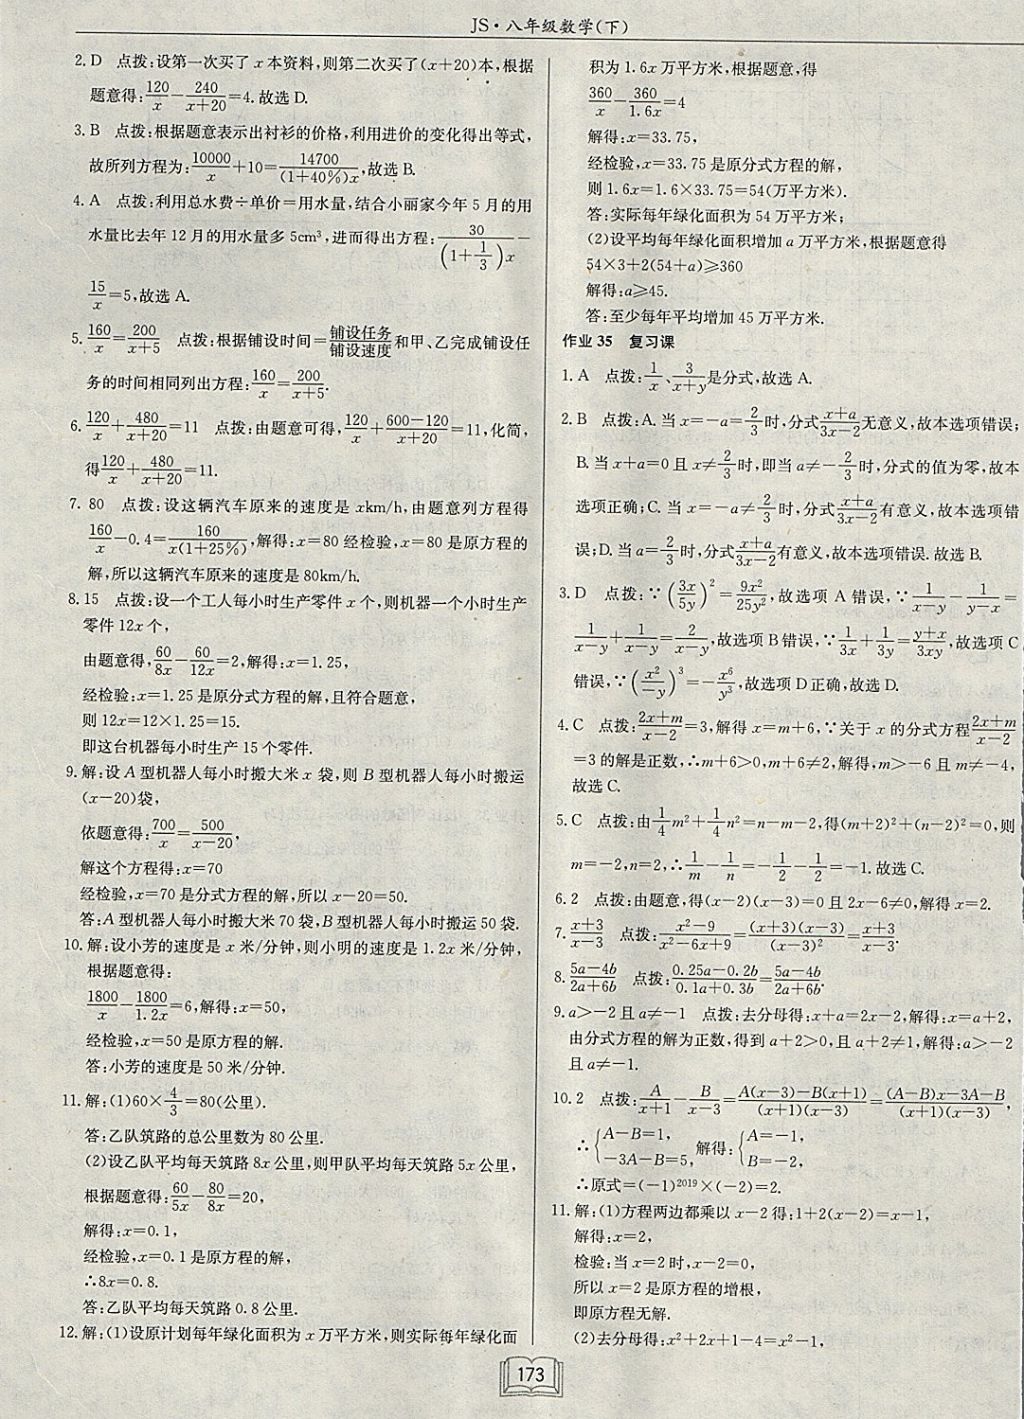 JS·八年级数学(下)
2. D 点拨:设第一次买了 x 本资料,则第二次买了(x+20)本,根据
题意得:120/x−240/(x+20)=4.故选 D.
3. B 点拨:根据题意表示出衬衫的价格,利用进价的变化得出等式,
故所列方程为:10000/x+10=14700/((1+40%)x),故选 B.
4. A 点拨:利用总水费÷单价=用水量,结合小丽家今年 5 月的用
水量比去年 12 月的用水量多 5cm³,进而得出方程:30/((1+1/3)x)−
15/x=5,故选 A.
5. 160/x=200/(x+5) 点拨:根据铺设时间=铺设任务/铺设速度和甲、乙完成铺设任
务的时间相同列出方程:160/x=200/(x+5).
6. 120/x+480/(x+20)=11 点拨:由题意可得,120/x+(600−120)/(x+20)=11,化简,
得120/x+480/(x+20)=11.
7. 80 点拨:设这辆汽车原来的速度是 xkm/h,由题意列方程得
160/x−0.4=160/(x(1+25%)),解得:x=80 经检验,x=80 是原方程的
解,所以这辆汽车原来的速度是 80km/h.
8. 15 点拨:设一个工人每小时生产零件 x 个,则机器一个小时生产
零件 12x 个,
由题意得,60/8x−60/12x=2,解得:x=1.25,
经检验:x=1.25 是原分式方程的解,且符合题意,
则 12x=12×1.25=15.
即这台机器每小时生产 15 个零件.
9. 解:设 A 型机器人每小时搬大米 x 袋,则 B 型机器人每小时搬运
(x−20)袋,
依题意得:700/x=500/(x−20),
解这个方程得:x=70
经检验,x=70 是分式方程的解,所以 x−20=50.
答:A 型机器人每小时搬大米 70 袋,B 型机器人每小时搬运 50 袋.
10. 解:设小芳的速度是 x 米/分钟,则小明的速度是 1.2x 米/分钟,
根据题意得:
1800/x−1800/1.2x=6,解得:x=50,
经检验,x=50 是原方程的解.
答:小芳的速度是 50 米/分钟.
11. 解:(1)60×4/3=80(公里).
答:乙队筑路的总公里数为 80 公里.
(2)设乙队平均每天筑路 8x 公里,则甲队平均每天筑路 5x 公里,
根据题意得:60/5x−80/8x=20,
解得:x=0.1,
经检验,x=0.1 是原方程的解,
∴8x=0.8.
答:乙队平均每天筑路 0.8 公里.
12. 解:(1)设原计划每年绿化面积为 x 万平方米,则实际每年绿化面
积为 1.6x 万平方米,根据题意,得
360/x−360/1.6x=4
解得:x=33.75,
经检验,x=33.75 是原分式方程的解,
则 1.6x=1.6×33.75=54(万平方米).
答:实际每年绿化面积为 54 万平方米;
(2)设平均每年绿化面积增加 a 万平方米,根据题意得
54×3+2(54+a)⩾360
解得:a⩾45.
答:至少每年平均增加 45 万平方米.
作业 35 复习课
1. A 点拨:1/x、3/(x+y)是分式,故选 A.
2. B 点拨:A.当 x=−a=2/3时,分式(x+a)/(3x−2)无意义,故本选项错误;
B.当 x+a=0 且 x≠2/3时,即当 a≠−2/3时,分式的值为零,故本
选项正确;C.当 x=−a≠2/3时,分式(x+a)/(3x−2)有意义,故本选项错
误;D.当 a=2/3时,分式(x+a)/(3x−2)有意义,故本选项错误.故选 B.
3. D 点拨:∵(3x/5y)²=9x²/25y²,故选项 A 错误,∵1/(x−y)−1/(y−x)=
1/(x−y)+1/(x−y)=2/(x−y),故选项 B 错误,∵1/3x+1/3y=(y+x)/3xy,故选项 C
错误,∵(x²/−y)³=−x⁶/y³,故选项 D 正确,故选 D.
4. C 点拨:(2x+m)/(x−2)=3,解得 x=m+6,∵关于 x 的分式方程(2x+m)/(x−2)
=3 的解是正数,∴m+6>0,m+6≠2,解得,m>−6 且 m≠−4,
故选 C.
5. C 点拨:由1/4m²+1/4n²=n−m−2,得(m+2)²+(n−2)²=0,则
m=−2,n=2,∴1/m−1/n=−1/2−1/2=−1.故选 C.
6. 2 点拨:由题意,得(x−2)(x−3)=0 且 2x−6≠0,解得 x=2.
7. (x+3)/(x−3) 点拨:(x²−9)/(x²−6x+9)=(x+3)(x−3)/(x−3)²=(x+3)/(x−3).
8. (5a−4b)/(2a+6b) 点拨:(0.25a−0.2b)/(0.1a+0.3b)=(5a−4b)/(2a+6b).
9. a>−2 且 a≠−1 点拨:去分母得:x+a=2x−2,解得:x=a+2,
由分式方程的解为正数,得到 a+2>0,且 a+2≠1,解得:a>−2
且 a≠−1.
10. 2 点拨:A/(x+1)−B/(x−3)=(A(x−3)−B(x+1))/((x+1)(x−3))=((A−B)x−3A−B)/((x+1)(x−3)),
∴{A−B=1, −3A−B=5, 解得:{A=−1, B=−2,
∴原式=(−1)²⁰¹⁹×(−2)=2.
11. 解:(1)方程两边都乘以 x−2 得:1+2(x−2)=x−1,
解得:x=2,
检验:当 x=2 时,x−2=0,
所以 x=2 是原方程的增根,
即原方程无解.
(2)去分母得:x²+2x+1−4=x²−1,
173